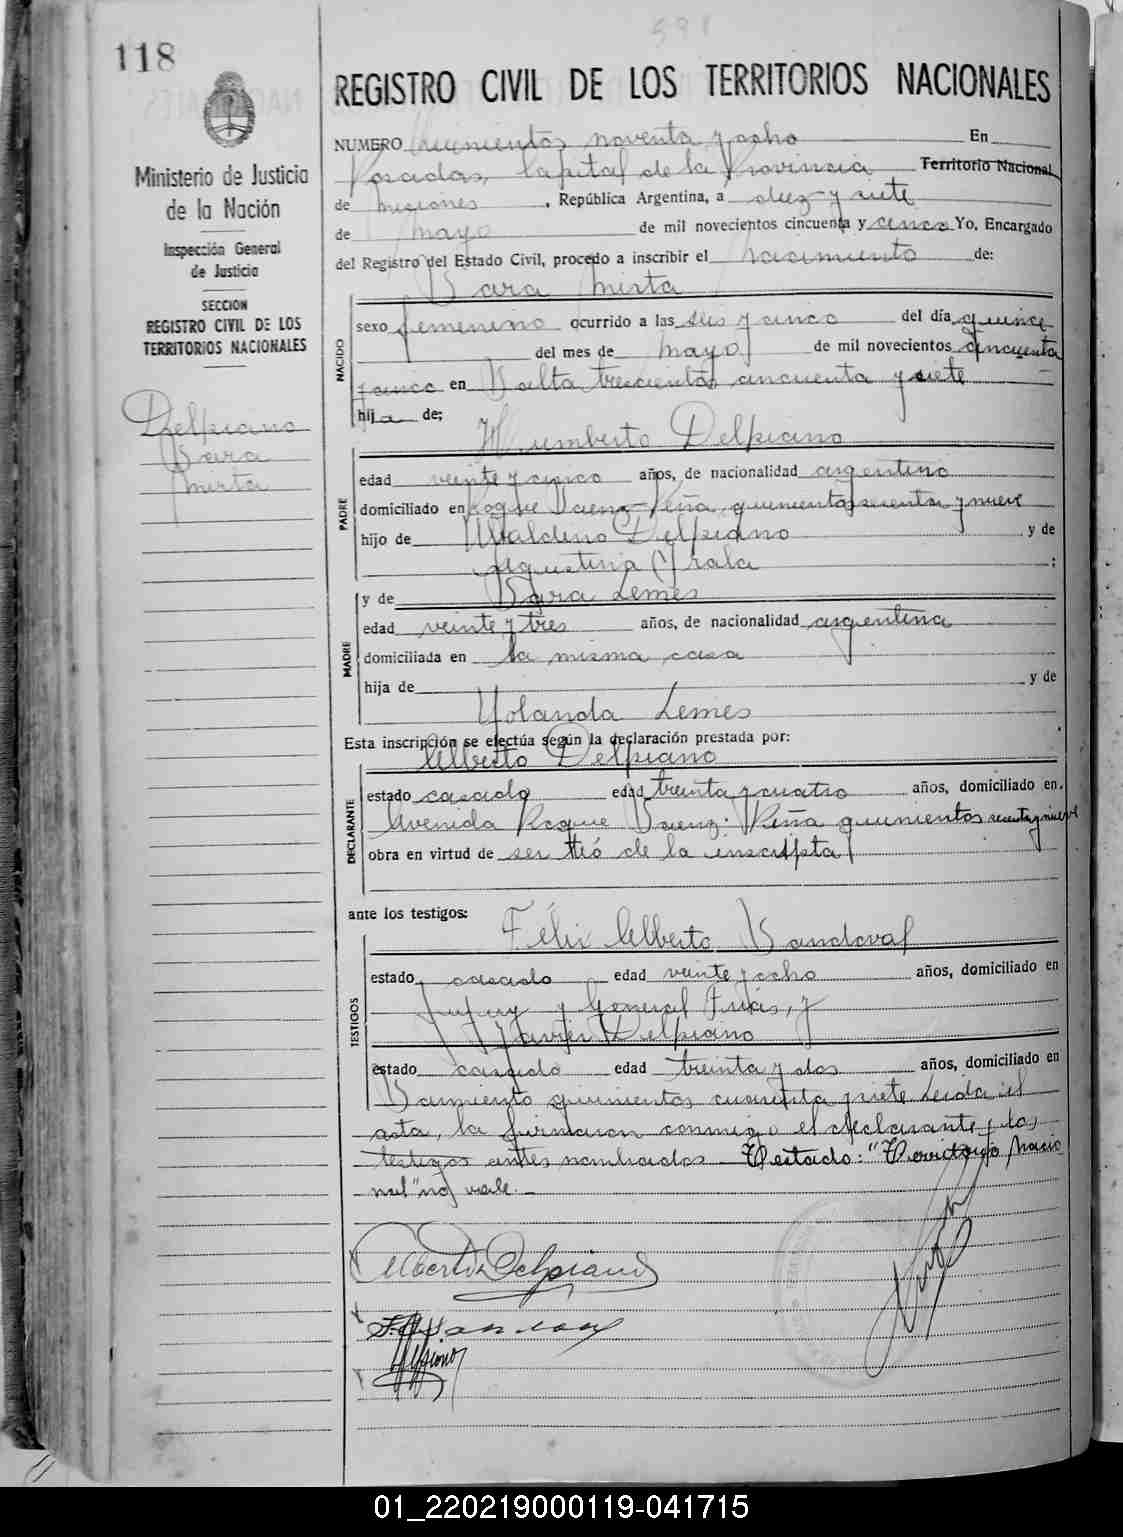 598
118
REGISTRO CIVIL DE LOS TERRITORIOS NACIONALES
Ministerio de Justicia
de la Nación
Inspección General
de Justicia
SECCION
REGISTRO CIVIL DE LOS
TERRITORIOS NACIONALES
Delpiano
Sara
Mirta
NUMERO noventa y ocho En
Posadas, Capital de la Provincia Territorio Nacional
de Misiones, República Argentina, a diez y siete
de mayo de mil novecientos cincuenta y cinco Yo, Encargado
del Registro del Estado Civil, procedo a inscribir el nacimiento de:
Sara Mirta
NACIDO
sexo femenino ocurrido a las seis y cinco del día quince
del mes de mayo de mil novecientos cincuenta
y cinco en Salta trescientos cincuenta y siete
hija de:
Humberto Delpiano
PADRE
edad veinte y cinco años, de nacionalidad argentino
domiciliado en Roque Saenz Peña quinientos sesenta y nueve
hijo de Ubaldino Delpiano y de
Agustina Irala ;
y de Sara Lemes
MADRE
edad veinte y tres años, de nacionalidad argentina
domiciliada en la misma casa
hija de y de
Yolanda Lemes
Esta inscripción se efectúa según la declaración prestada por:
Alberto Delpiano
DECLARANTE
estado casado edad treinta y cuatro años, domiciliado en
Avenida Roque Saenz Peña quinientos sesenta y nueve
obra en virtud de ser tió de la inscripta
ante los testigos:
Félix Alberto Sandoval
TESTIGOS
estado casado edad veinte y ocho años, domiciliado en
Jujuy y General Frias, y
Javier Delpiano
estado casado edad treinta y dos años, domiciliado en
Sarmiento quinientos cuarenta y siete Leida el
acta, la firmaron conmigo el declarante y los
testigos antes nombrados - Testado: "Territorio Nacio
nal" no vale. -
Alberto Delpiano
01_220219000119-041715